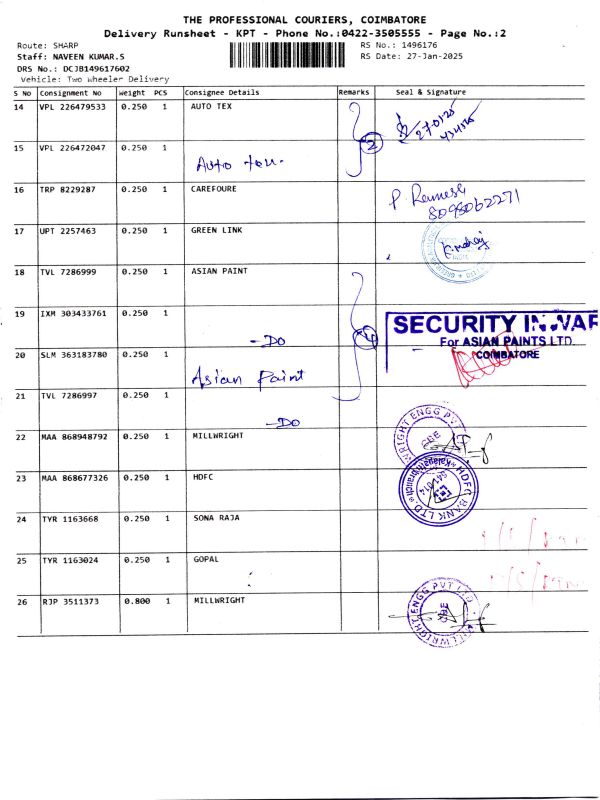 THE PROFESSIONAL COURIERS, COIMBATORE
Delivery Runsheet - KPT - Phone No.:0422-3505555 - Page No.:2
Route: SHARP RS No.: 1496176
Staff: NAVEEN KUMAR.S RS Date: 27-Jan-2025
DRS No.: DCJB149617602
Vehicle: Two Wheeler Delivery
S No Consignment No Weight PCS Consignee Details Remarks Seal & Signature
14 VPL 226479533 0.250 1 AUTO TEX
2
15 VPL 226472047 0.250 1
Auto tex.
16 TRP 8229287 0.250 1 CAREFOURE
8095062271
17 UPT 2257463 0.250 1 GREEN LINK
18 TVL 7286999 0.250 1 ASIAN PAINT
19 IXM 303433761 0.250 1
-Do 4
SECURITY INWAR
For ASIAN PAINTS LTD.
COIMBATORE
20 SLM 363183780 0.250 1
Asian Paint
21 TVL 7286997 0.250 1
-Do
22 MAA 868948792 0.250 1 MILLWRIGHT
WRIGHT ENGG PVT
23 MAA 868677326 0.250 1 HDFC
HDFC BANK LTD
24 TYR 1163668 0.250 1 SONA RAJA
25 TYR 1163024 0.250 1 GOPAL
26 RJP 3511373 0.800 1 MILLWRIGHT
MILLWRIGHT ENGG PVT LTD